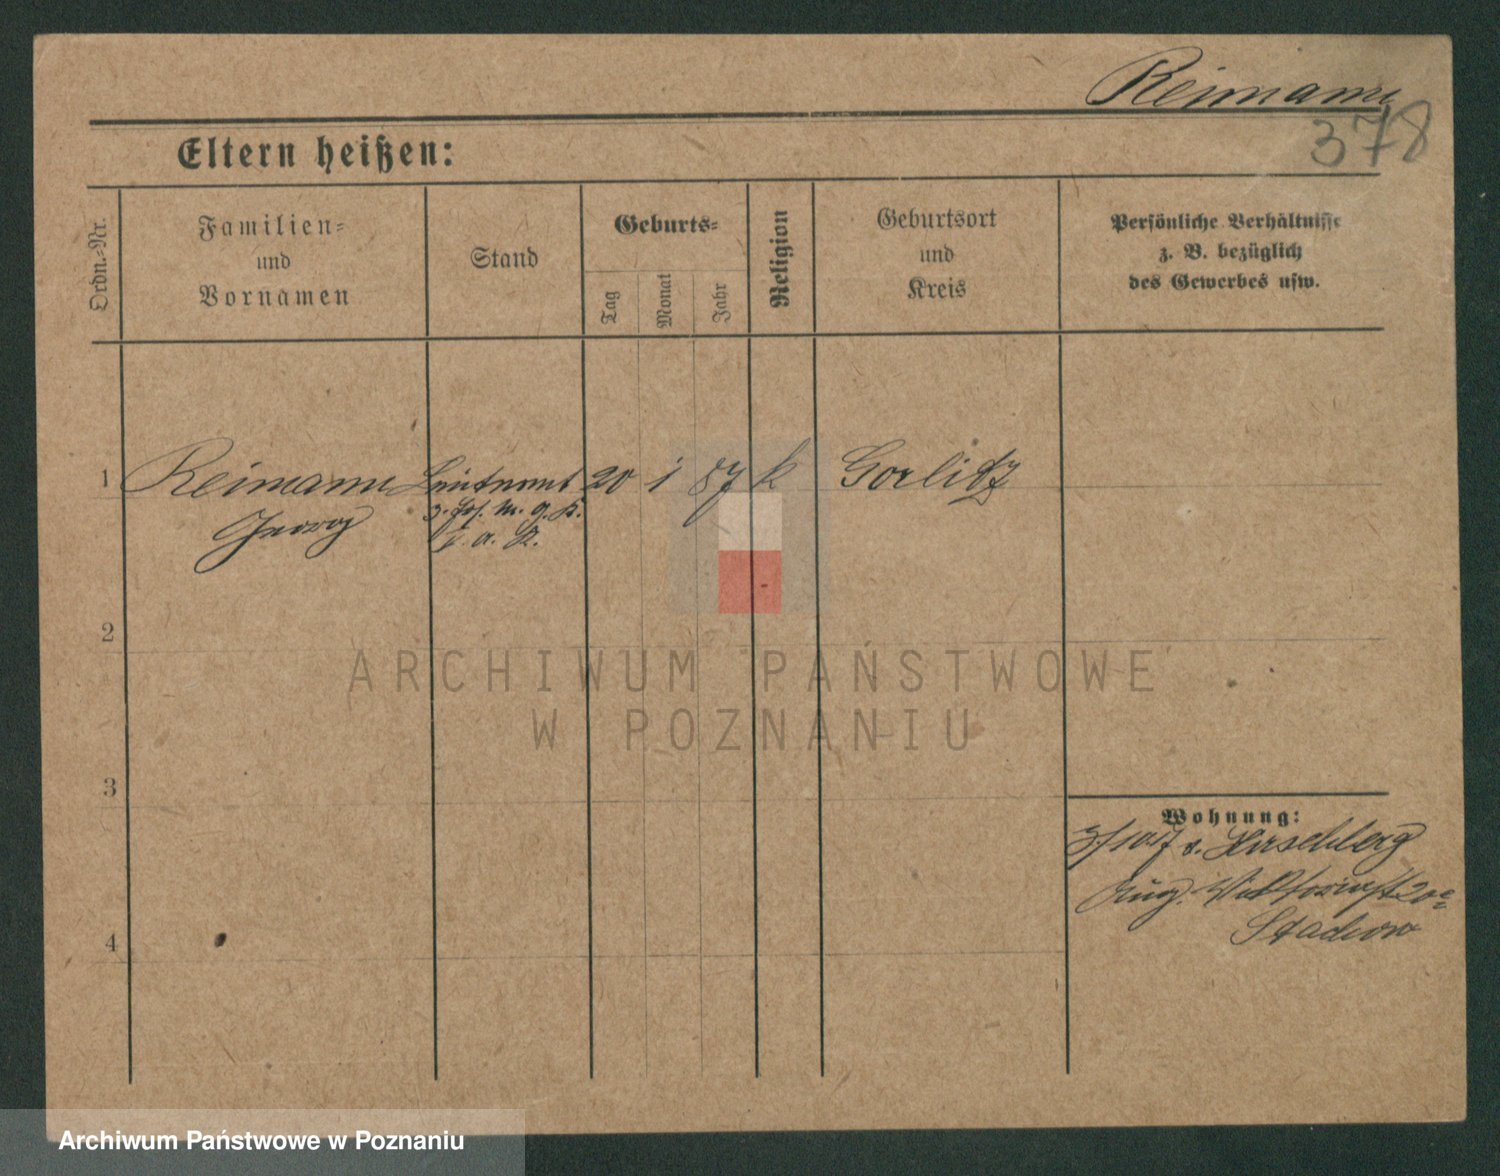 Reimann
378
Eltern heißen:
Ordn.-Nr.
Familien-
und
Vornamen
Stand
Geburts-
Tag
Monat
Jahr
Religion
Geburtsort
und
Kreis
Persönliche Verhältnisse
z. B. bezüglich
des Gewerbes usw.
1 Reimann Leutnant 20 1 87 k Gorlitz
Georg
2
3
4
ARCHIWUM PAŃSTWOWE
W POZNANIU
Wohnung:
3/10 17 v. Hirschberg
Aug. Viktoriast 20
Archiwum Państwowe w Poznaniu